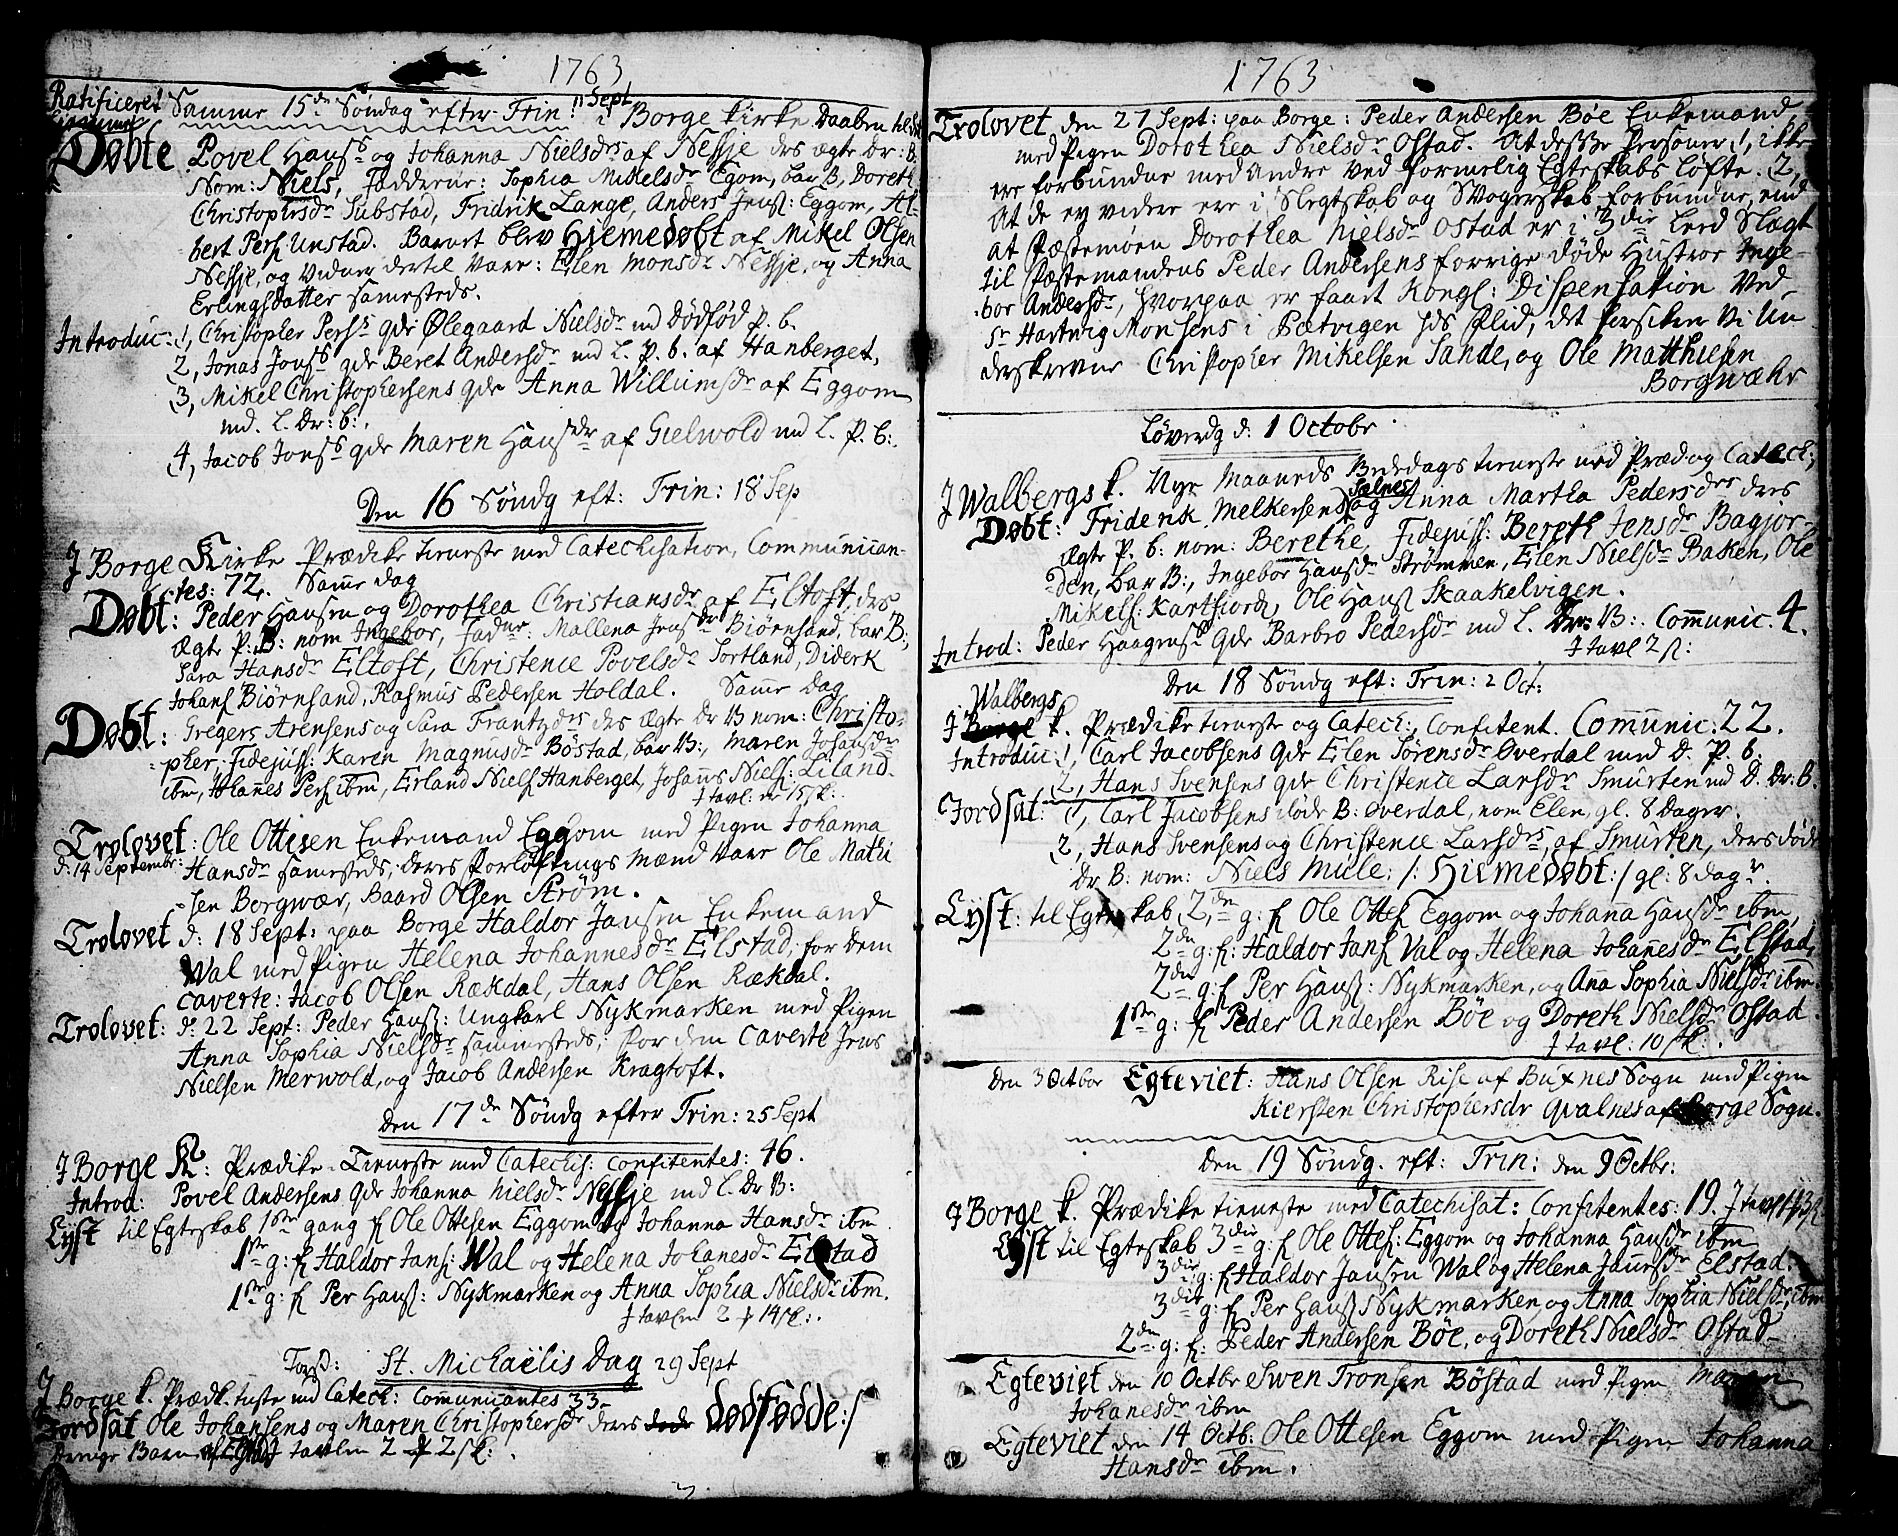 1763
Ratificeret Samme 15de Søndag efter Trin: 11 Sept i Borge Kirke Daaben
Døbte Povel Hans: og Johanna Nielsdrs af Nessje drs ægte Dr: B.
Nom: Niels, Fadderne: Sophia Mikelsdr Egom, bar B, Doreth
Christophersdr Substad, Fridrik Lange, Anders Jens: Eggom, Al-
bert Pers Unstad. Barnet blev Hiemedøbt af Mikel Olsen
Nessje, og Vidner dertil Vare: Elen Monsdr Nessje, og Anna
Erlingsdatter sammesteds.
Introduc: 1, Christopher Pers: qde Ølegaard Nielsdr md dødfød P. b.
2, Jonas Jons: qde Beret Andersdr md L. P. b. af Hanberget,
3, Mikel Christophersens qde Anna Willumsdr af Eggom
md. L. Dr: b:.
4, Jacob Jons: qde Maren Hansdr af Gielwold md L. P. b:.
Den 16 Søndg eft: Trin: 18 Sep
J Borge Kirke Prædike tieneste med Catechisation, Communican-
tes: 72. Samme dag
Døbt: Peder Hansen og Dorothea Christiansdr af Eltoft, des
ægte P: B: nom Ingebor, Fadne: Mallena Jensdr Biørnsand, bar B;
Sara Hansdr Eltoft, Christence Povelsdr Sortland, Diderk
Johans Biørnsand, Rasmus Pedersen Holdal. Samme Dag
Døbt: Gregers Arensens og Sara Frantzdrs des ægte Dr B nom: Christo-
pher: Fidejuss: Karen Magnusdr Bøstad, bar B:, Maren Johansdr
ibm, Johannes Pers ibm, Erland Niels Hanberget, Johans Niels: Liland.
J tavl: 15 sk:.
Trolovet: Ole Ottesen Enkemand Eggom med Pigen Johanna
d: 14 Septembr: Hansdr sammesteds; deres Forløftnings Mænd Vare Ole Mathi
sen Borgwær, Baard Olsen Strøm.
Trolovet d: 18 Sept: paa Borge Haldor Jansen Enkemand
Wal med Pigen Helena Johannesdr Elstad; for dem
caverte: Jacob Olsen Rækdal, Hans Olsen Rækdal.
Trolovet: d: 22 Sept: Peder Hans: Ungkarl Nykmarken med Pigen
Anna Sophia Nielsdr sammesteds; for dem caverte Jens
Nielsen Merwold, og Jacob Andersen Kragtoft.
Den 17de Søndg efter Trin: 25 Sept
J Borge K: Prædike-Tieneste med Catechis: confitentes: 46.
Introd: Povel Andersens qde Johanna Nielsdr Nessje md L. Dr B:
Lyst til Egteskab 1ste gang f Ole Ottesen Eggom og Johanna Hansdr ibm
1ste g: f Haldor Jans: Wal og Helena Johanesdr Elstad
1ste g: f Per Hans: Nykmarken og Anna Sophia Nielsdr ibm.
J tavlen 2 14 sk:.
Torsd: St. Michaëlis Dag 29 Sept
J Borge k. Prædk. tnste md Catech: Communicantes 33-
Jordsat Ole Johansens og Maren Christophersdr deres dødfødde:/
Drenge Barn af Elstad J tavlen 2 2 sk:.
1763
Trolovet den 27 Sept: paa Borge: Peder Andersen Bøe Enkemand,
med Pigen Dorothea Nielsdr Ostad. At desse Personer 1, ikke
ere forbundne med andre ved formelig Egteskabs Løfte. 2,
At de ey videre ere i Slegtskab og Svogerskab forbundne, end
at Fæstemøen Dorothea Nielsdr Ostad er i 3die Leed Slægt
til Fæstemandens Peder Andersens forrige døde Hustroe Inge-
bor Andersdr, hvorpaa er faaet Kongl: Dispensation Ved-
sr Hartvig Monsens i Pætvigen hds Flid, det forsikrer Vi Un
derskrevne Christopher Mikelsen Sande, og Ole Matthiesen
Borgwæhr
Løverdg d: 1 Octobr
J Walbergs k. Nye Maaneds Bededags tieneste med Præd. og Catech:,
Døbt: Friderik Melkersens Sælnes og Anna Martha Pedersdrs deres
ægte P. b: nom: Berethe, Fidejuss: Bereth Jensdr Bagjor-
den, bar B:, Ingebor Hansdr Strømmen, Elen Nielsdr Baken, Ole
Mikels: Kartfiord, Ole Hans Skaakelvigen.
Introd: Peder Haagens: qde Barbro Pedersdr md L. Dr: B:. Communic. 4.
J tavl 2 sk:
Den 18 Søndg eft: Trin: 2 Oct:
J Walbergs k. Prædike tieneste og Catech:, Confitent. Communic: 22.
Introduc: 1, Carl Jacobsens qde Elen Sørensdr Overdal med D. P. b.
2, Hans Svensens qde Christence Larsdr Smurten md D. Dr: B.
Jordsat: 1, Carl Jacobsens døde B: Overdal, nom Elen, gl. 8 Dager.
2, Hans Svensens og Christence Larsdrs, af Smurten, ders døde
Dr B: nom: Niels Mule: /: Hiemedøbt :/ gl: 8 dagr.
Lyst: til Egteskab 2den g: f Ole Ottes Eggom og Johana Hansdr ibm,
2den g: f: Haldor Jans Val og Helena Johanesdr Elstad,
2den g: f Per Hans: Nykmarken, og Ana Sophia Nielsdr ibm.
1ste g: f Peder Andersen Bøe og Doreth Nielsdr Ostad.
J tavl: 10 sk:.
Den 3 Octbor Egteviet: Hans Olsen Rise af Buxnes Sogn med Pigen
Kiersten Christophersdr Qvalnes af Borge Sogn.
Den 19 Søndg. eft: Trin: den 9 Octbr:
J Borge k. Prædike tieneste med Catechisat: Confitentes: 19. J tavl 13 sk
Lyst til Egteskab 3die g: f Ole Ottes: Eggom og Johanna Hansdr ibm
3die g: f Haldor Jansen Wal og Helena Janesdr Elstad.
3die g: f Per Hans Nykmarken, og Anna Sophia Nielsdr, ibm
2den g: f: Peder Andersen Bøe, og Doreth Nielsdr Ostad-
Egteviet den 10 Octbr Swen Tronsen Bøstad med Pigen Maren
Johanesdr ibm
Egteviet den 14 Octb: Ole Ottesen Eggom med Pigen Johanna
Hansdr ibm.